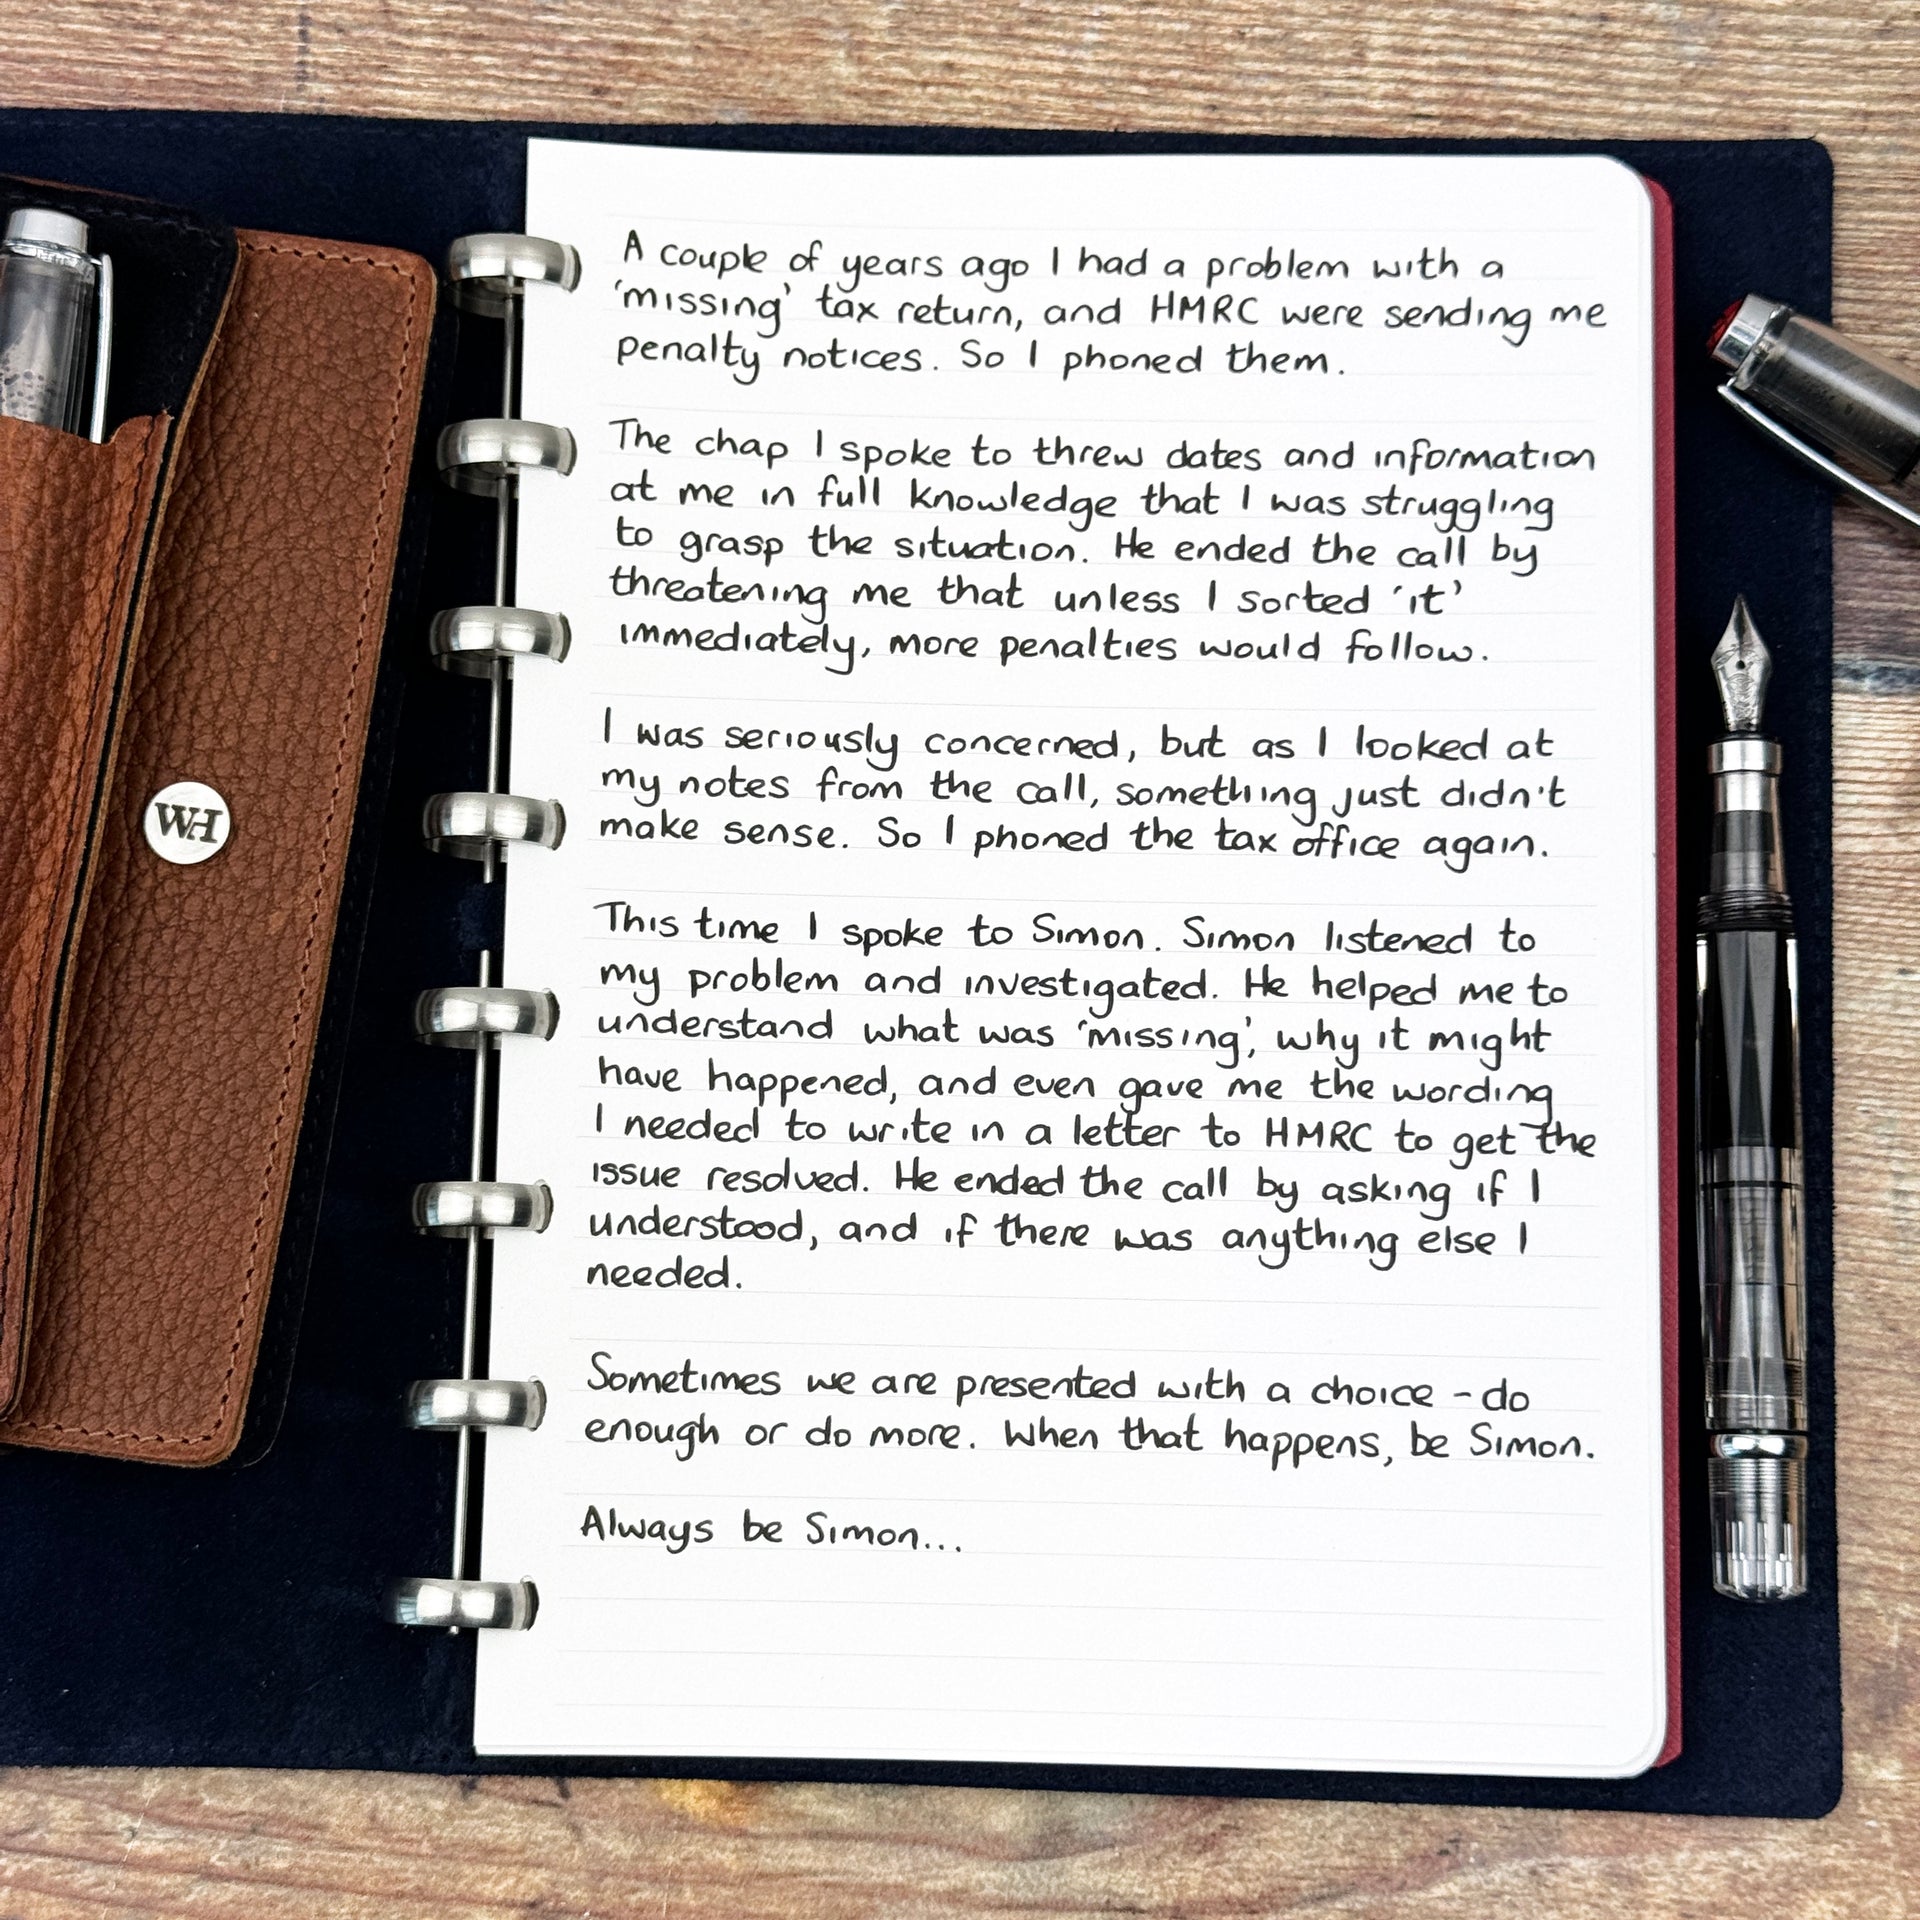 WH
A couple of years ago I had a problem with a
'missing' tax return, and HMRC were sending me
penalty notices. So I phoned them.
The chap I spoke to threw dates and information
at me in full knowledge that I was struggling
to grasp the situation. He ended the call by
threatening me that unless I sorted 'it'
immediately, more penalties would follow.
I was seriously concerned, but as I looked at
my notes from the call, something just didn't
make sense. So I phoned the tax office again.
This time I spoke to Simon. Simon listened to
my problem and investigated. He helped me to
understand what was 'missing', why it might
have happened, and even gave me the wording
I needed to write in a letter to HMRC to get the
issue resolved. He ended the call by asking if I
understood, and if there was anything else I
needed.
Sometimes we are presented with a choice - do
enough or do more. When that happens, be Simon.
Always be Simon...